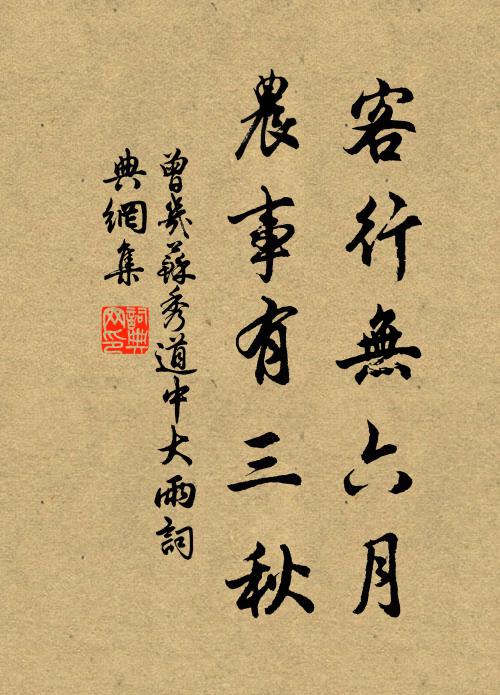 客行無六月
農事有三秋
曾幾蘇秀道中大雨詞
典網集
詞典
网印